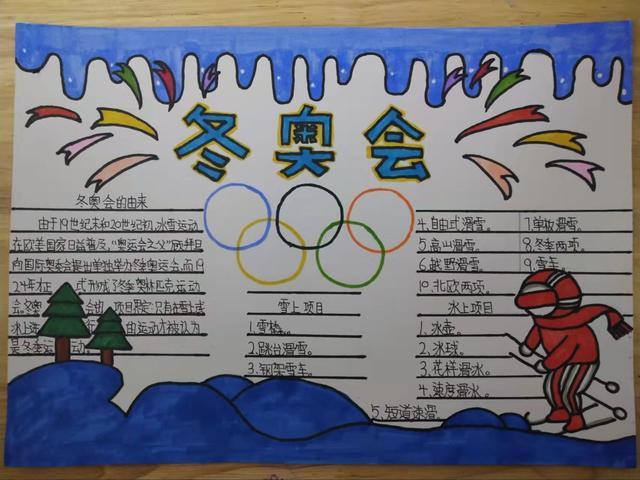 冬奥会
冬奥会的由来
由于19世纪末和20世纪初,冰雪运动
在欧美国家日益普及,"奥运会之父"顾拜旦
向国际奥委会提出单独举办冬季奥运会,而19
24年才正式形成了冬季奥林匹克运动
会.冬奥会的项目限定:只有在雪上或
冰上进行的运动才被认为
是冬季运动。
雪上项目
1.雪橇。
2.跳台滑雪。
3.钢架雪车。
4.自由式滑雪。
5.高山滑雪。
6.越野滑雪。
7.单板滑雪。
8.冬季两项。
9.雪车。
10.北欧两项。
冰上项目
1.冰壶。
2.冰球。
3.花样滑冰。
4.速度滑冰。
5.短道速滑。